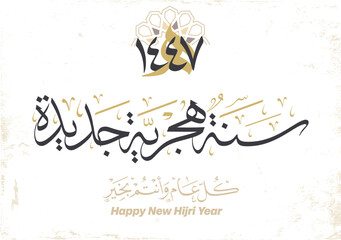 ١٤٤٧
سَنَة هِجْرِيَّة جَدِيدَة
كُلُّ عَام وَأَنْتُمْ بِخَيْر
Happy New Hijri Year